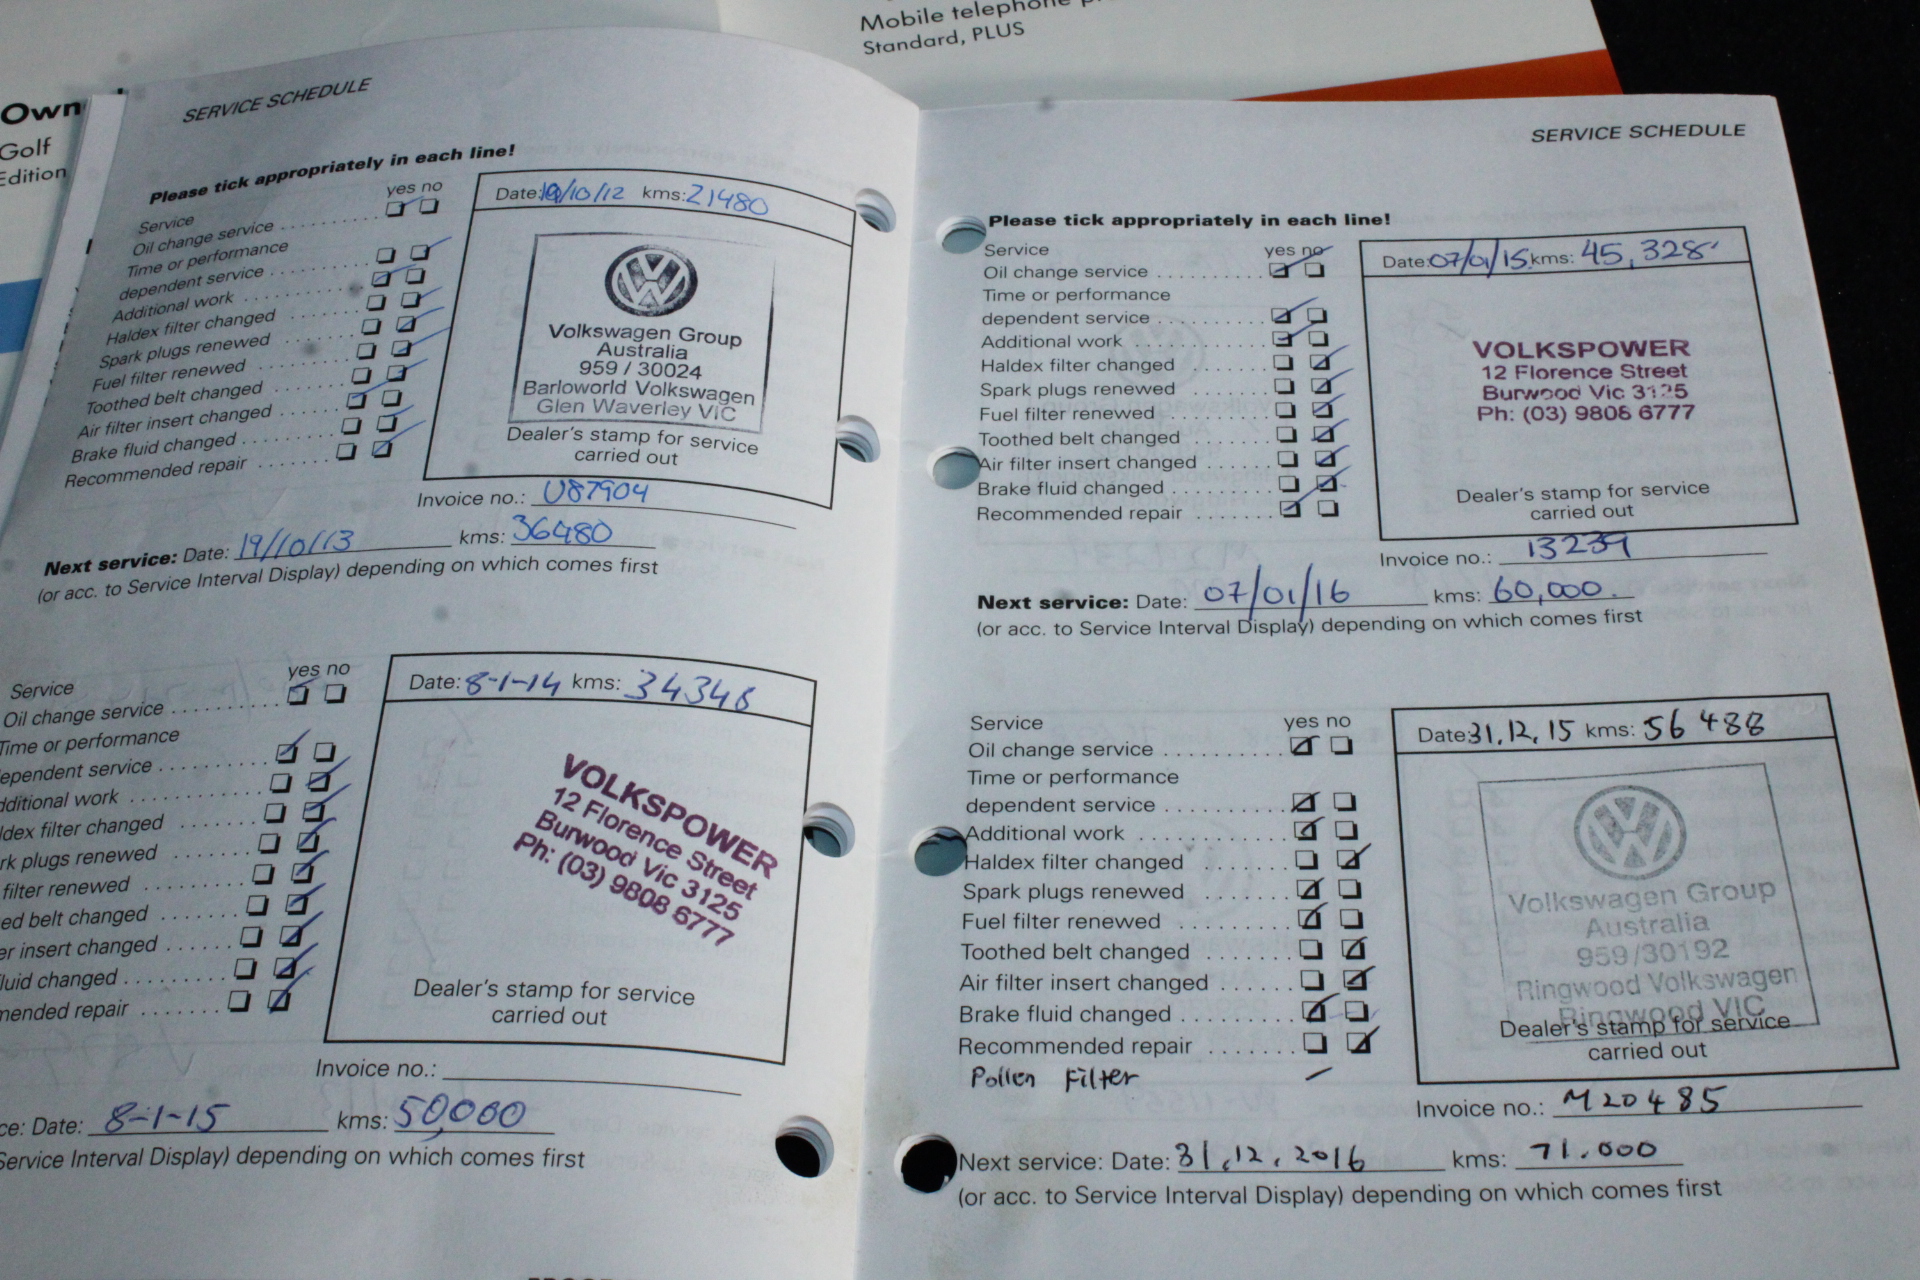 Mobile telephone
Standard, PLUS
Golf
Edition
SERVICE SCHEDULE
Please tick appropriately in each line!
yes no
Service
Oil change service
Time or performance
dependent service
Additional work
Haldex filter changed
Spark plugs renewed
Fuel filter renewed
Toothed belt changed
Air filter insert changed
Brake fluid changed
Recommended repair
Date: 19/10/12 kms: 21480
Volkswagen Group
Australia
959 / 30024
Barloworld Volkswagen
Glen Waverley VIC
Dealer's stamp for service
carried out
Invoice no.: U87904
Next service: Date: 19/10/13 kms: 36480
(or acc. to Service Interval Display) depending on which comes first
yes no
Service
Oil change service
Time or performance
ependent service
dditional work
ldex filter changed
rk plugs renewed
filter renewed
ed belt changed
er insert changed
fluid changed
mended repair
Date: 8-1-14 kms: 34348
VOLKSPOWER
12 Florence Street
Burwood Vic 3125
Ph: (03) 9808 6777
Dealer's stamp for service
carried out
Invoice no.:
ce: Date: 8-1-15 kms: 50,000
Service Interval Display) depending on which comes first
SERVICE SCHEDULE
Please tick appropriately in each line!
Service yes no
Oil change service
Time or performance
dependent service
Additional work
Haldex filter changed
Spark plugs renewed
Fuel filter renewed
Toothed belt changed
Air filter insert changed
Brake fluid changed
Recommended repair
Date: 07/01/15 kms: 45,328
VOLKSPOWER
12 Florence Street
Burwood Vic 3125
Ph: (03) 9808 6777
Dealer's stamp for service
carried out
Invoice no.: 13239
Next service: Date: 07/01/16 kms: 60,000.
(or acc. to Service Interval Display) depending on which comes first
Service yes no
Oil change service
Time or performance
dependent service
Additional work
Haldex filter changed
Spark plugs renewed
Fuel filter renewed
Toothed belt changed
Air filter insert changed
Brake fluid changed
Recommended repair
Pollen Filter
Date: 31.12.15 kms: 56 488
Volkswagen Group
Australia
959/30192
Ringwood Volkswagen
Ringwood VIC
Dealer's stamp for service
carried out
Invoice no.: M20485
Next service: Date: 31.12.2016 kms: 71.000
(or acc. to Service Interval Display) depending on which comes first